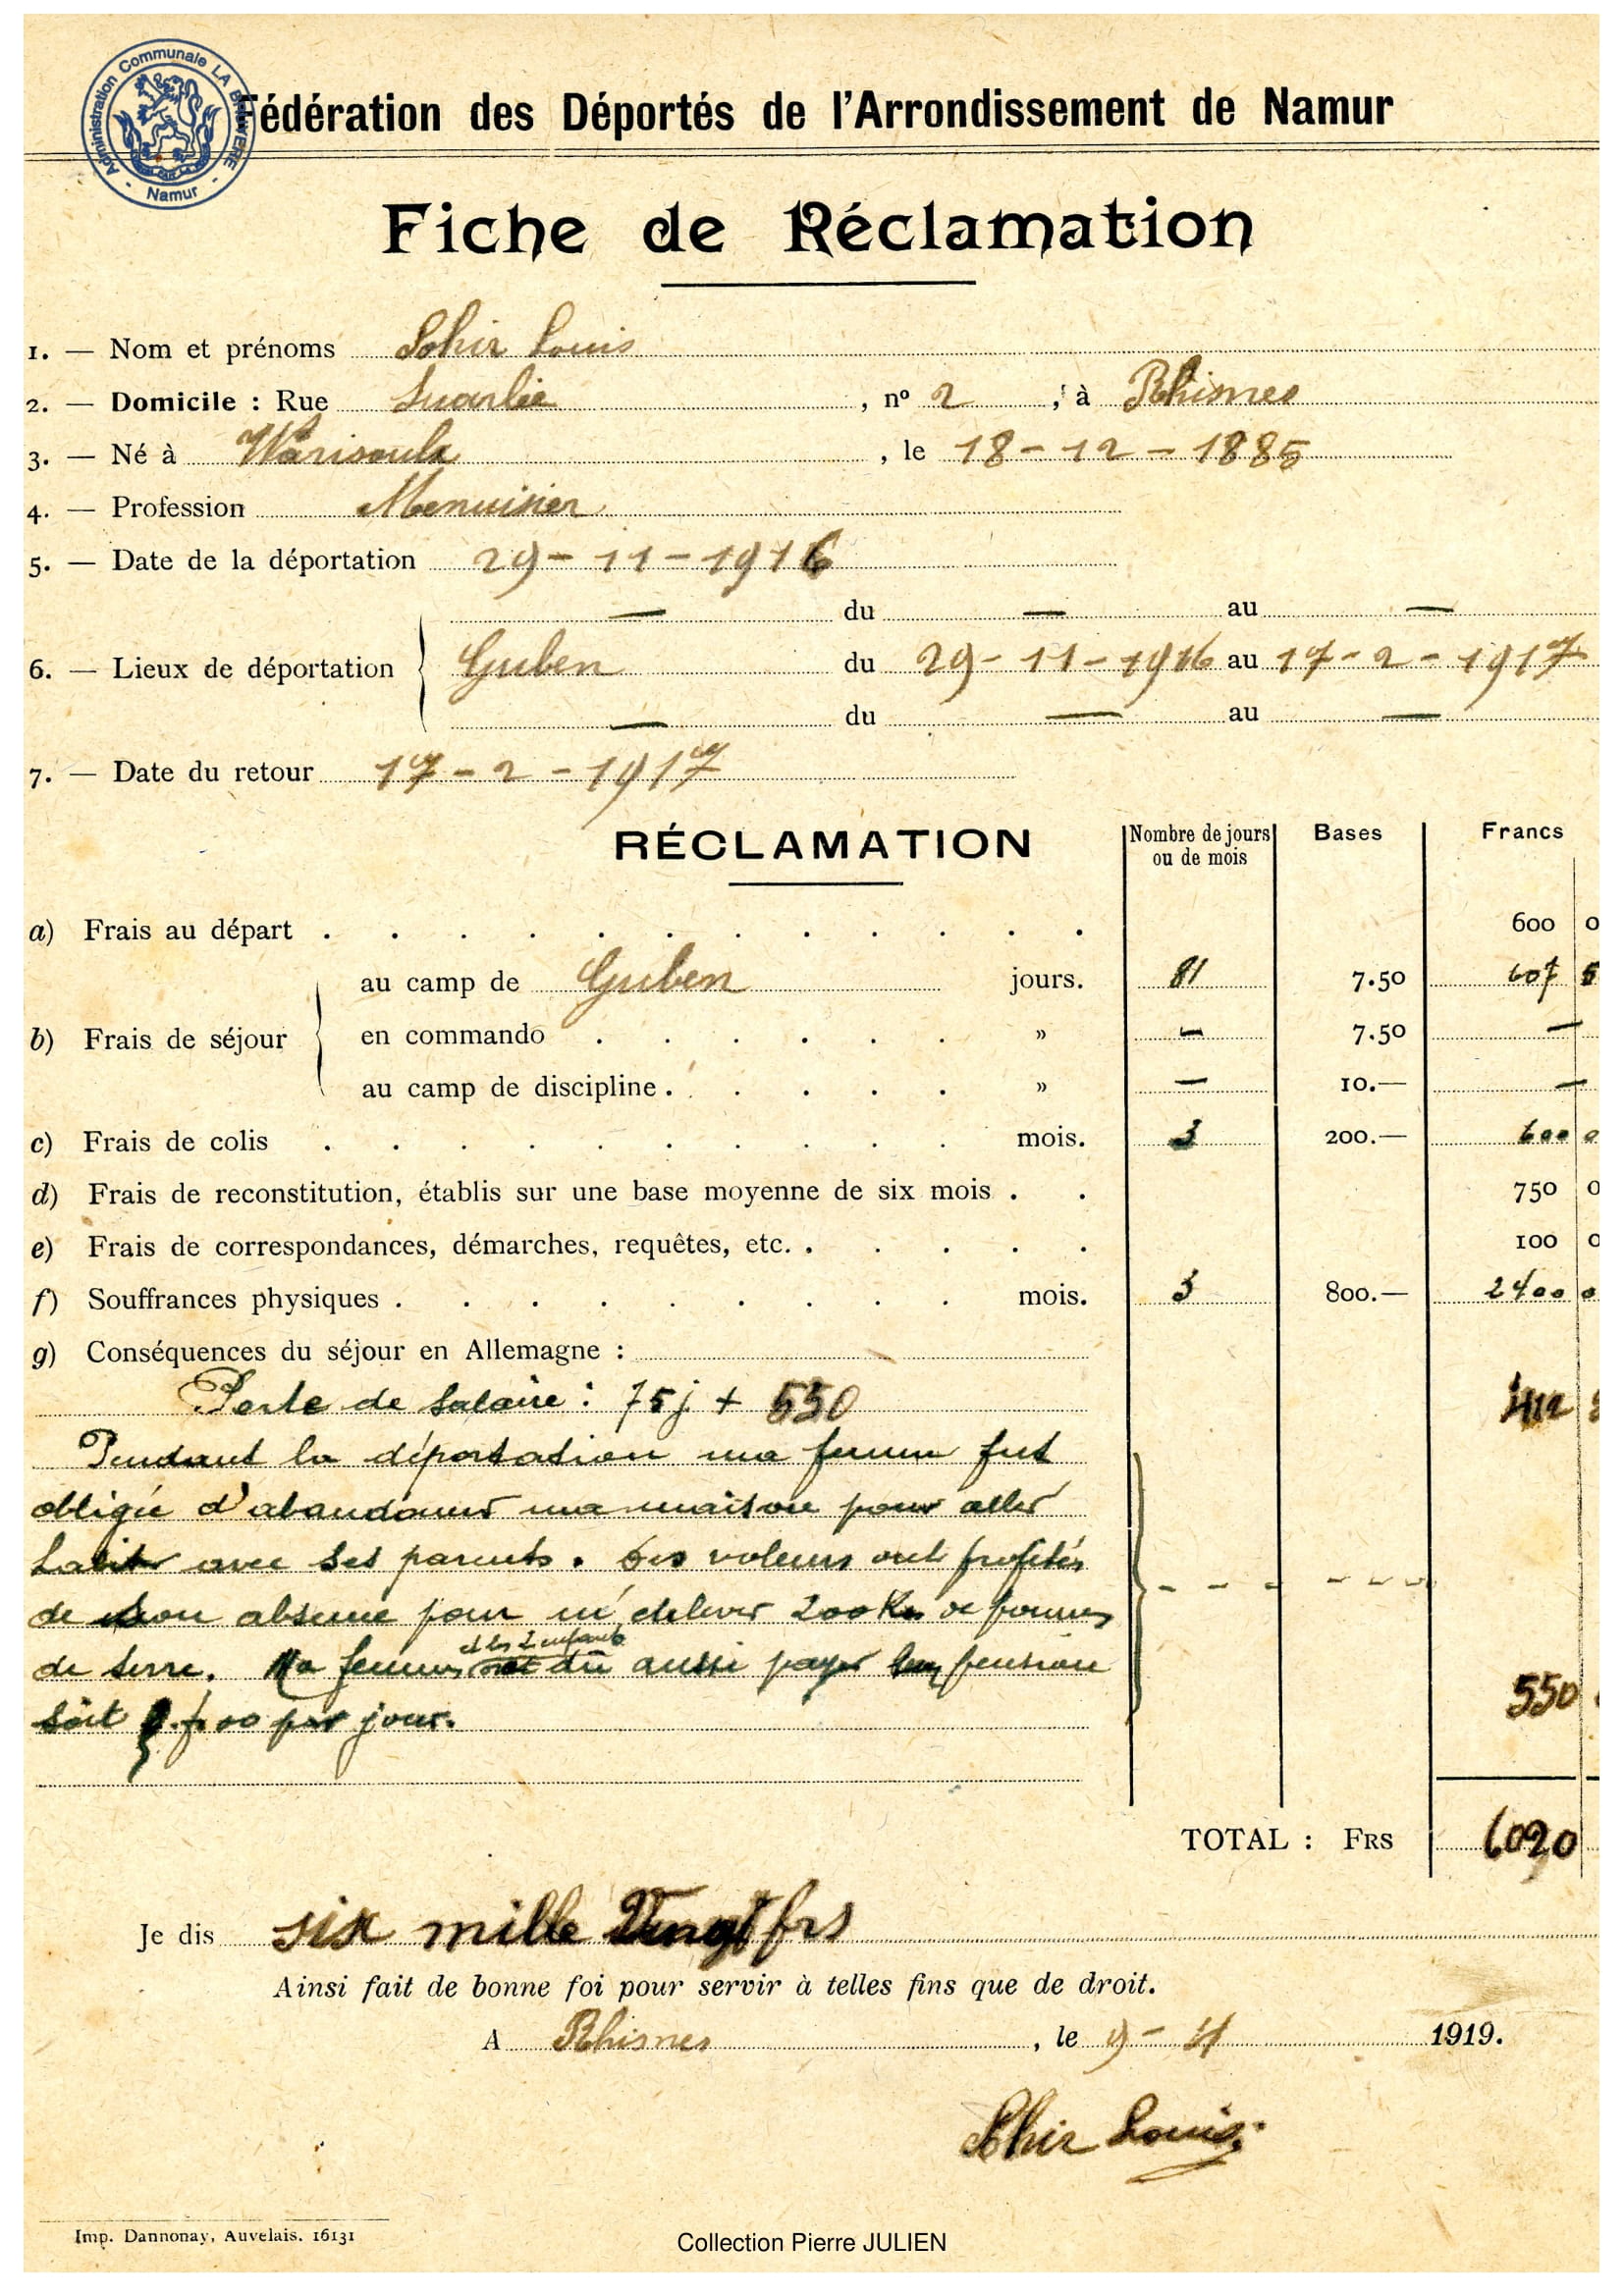 Administration Communale LA BRUYERE
- Namur -
Fédération des Déportés de l'Arrondissement de Namur
Fiche de Réclamation
1. — Nom et prénoms Sohir Louis
2. — Domicile : Rue Suarlée, nº 2, à Rhisnes
3. — Né à Warisoulx, le 18-12-1885
4. — Profession Menuisier
5. — Date de la déportation 29-11-1916
— du — au —
6. — Lieux de déportation Guben du 29-11-1916 au 17-2-1917
— du — au —
7. — Date du retour 17-2-1917
RÉCLAMATION Nombre de jours ou de mois Bases Francs
a) Frais au départ 600 0
au camp de Guben jours. 81 7.50 607 5
b) Frais de séjour en commando » — 7.50 —
au camp de discipline » — 10.— —
c) Frais de colis mois. 3 200.— 600 0
d) Frais de reconstitution, établis sur une base moyenne de six mois 750 0
e) Frais de correspondances, démarches, requêtes, etc. 100 0
f) Souffrances physiques mois. 3 800.— 2400 0
g) Conséquences du séjour en Allemagne :
Perte de salaire : 75 j + 550 412
Pendant la déportation ma femme fut
obligée d'abandonner ma maison pour aller
avec ses parents. Des voleurs ont profités
de son absence pour m'enlever 200 Ks de pommes
et les 2 enfants
de terre. Ma femme dû aussi payer leur pension
soit f,00 par jour. 550
TOTAL : FRS 6020
Je dis six mille Vingt frs
Ainsi fait de bonne foi pour servir à telles fins que de droit.
A Rhisnes, le 9-4 1919.
Sohir Louis
Imp. Dannonay, Auvelais. 16131
Collection Pierre JULIEN